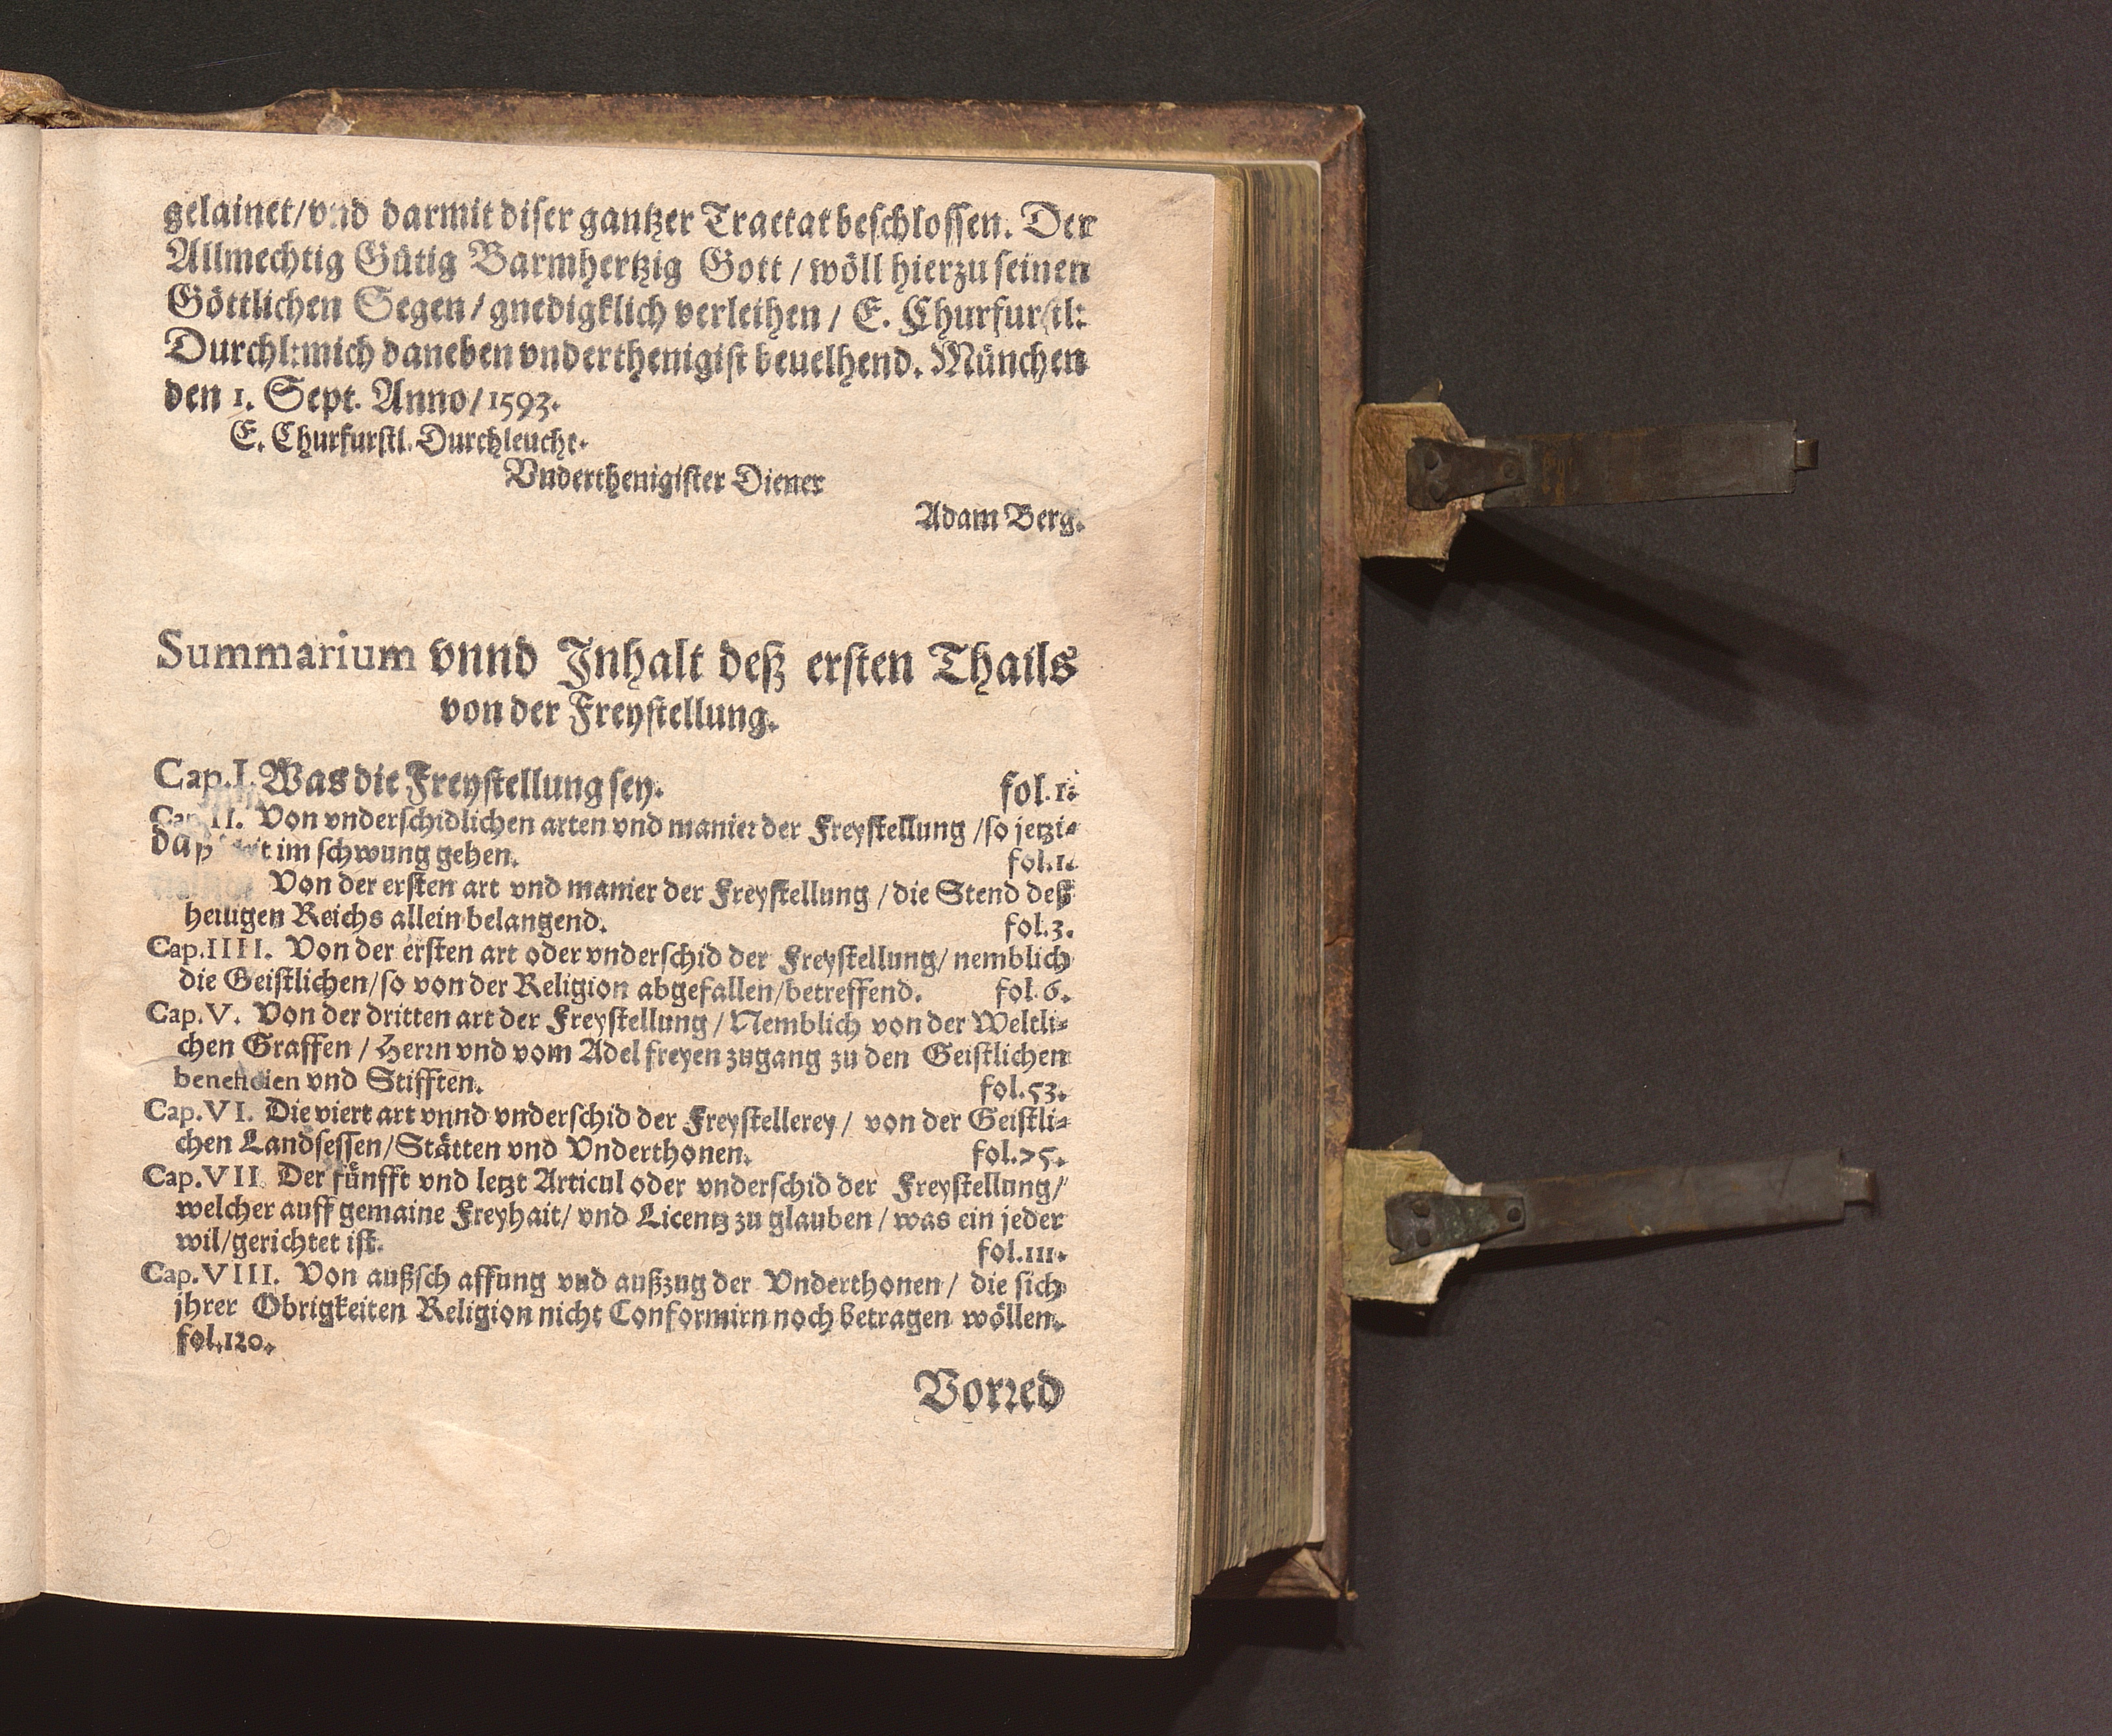 gelainet/vnd darmit diser gantzer Tractat beschlossen. Der
Allmechtig Gütig Barmhertzig Gott / wöll hierzu seinen
Göttlichen Segen / gnedigklich verleihen / E. Churfurstl:
Durchl: mich daneben vnderthenigist beuelhend. München
den 1. Sept. Anno/1593.
E. Churfurstl. Durchleucht.
Vnderthenigister Diener
Adam Berg.
Summarium vnnd Inhalt deß ersten Thails
von der Freystellung.
Cap. I. Was die Freystellung sey. fol. 1.
Cap. II. Von vnderschidlichen arten vnd manier der Freystellung / so jetzi-
im schwung gehen. fol. 1.
Von der ersten art vnd manier der Freystellung / die Stend deß
heiligen Reichs allein belangend. fol. 3.
Cap. IIII. Von der ersten art oder vnderschid der Freystellung/ nemblich
die Geistlichen/so von der Religion abgefallen/betreffend. fol. 6.
Cap. V. Von der dritten art der Freystellung / Nemblich von der Weltli-
chen Graffen / Herrn vnd vom Adel freyen zugang zu den Geistlichen
beneficien vnd Stifften. fol. 53.
Cap. VI. Die viert art vnnd vnderschid der Freystellerey / von der Geistli-
chen Landsessen/Stätten vnd Vnderthonen. fol. 75.
Cap. VII. Der fünfft vnd letzt Articul oder vnderschid der Freystellung/
welcher auff gemaine Freyhait/ vnd Licentz zu glauben / was ein jeder
wil/gerichtet ist. fol. 111.
Cap. VIII. Von außsch affung vnd außzug der Vnderthonen / die sich
jhrer Obrigkeiten Religion nicht Conformirn noch betragen wöllen.
fol. 120.
Vorred